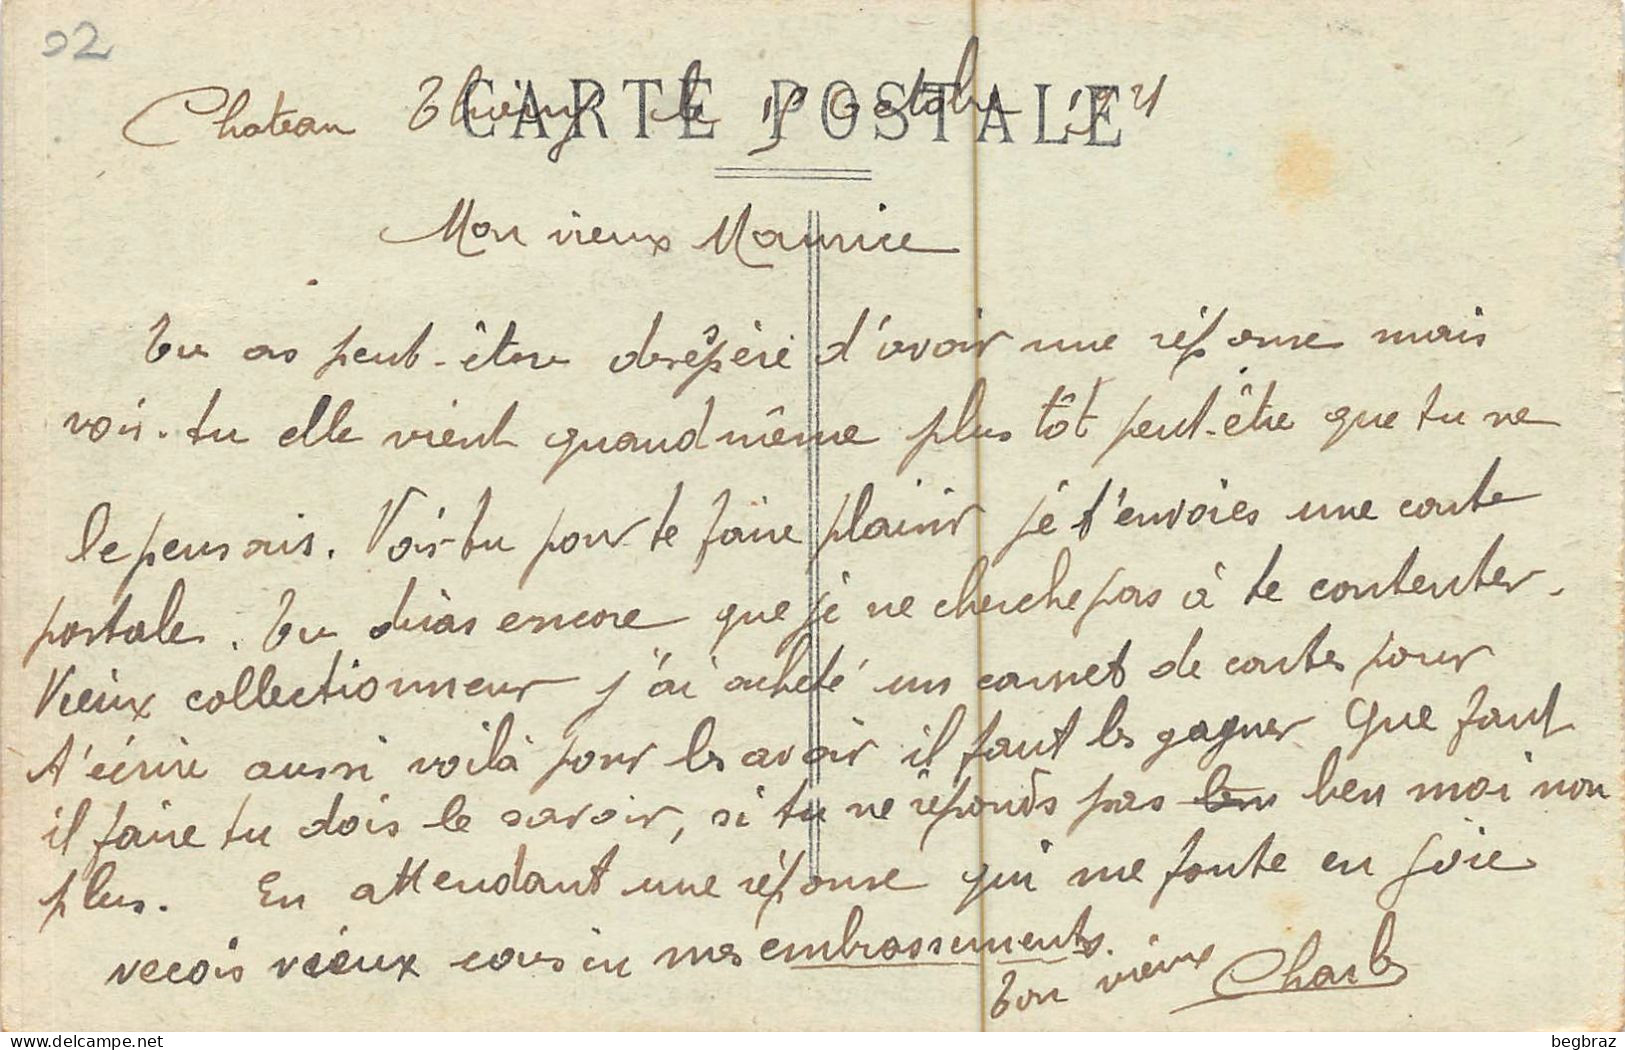 02
CARTE POSTALE
Chateau Thierry le octobre 1921
Mon vieux Maurice
Tu as peut-être desêpèré d'avoir une réponse mais
vois-tu elle vient quand même plus tôt peut-être que tu ne
le pensais. Vois-tu pour te faire plaisir je t'envoies une carte
postale. Tu diras encore que je ne cherche pas à te contenter.
Vieux collectionneur j'ai acheté un carnet de cartes pour
t'écrire aussi voilà pour les avoir il faut les gagner Que faut
il faire tu dois le savoir, si tu ne réponds pas ben moi non
plus. En attendant une réponse qui me foute en joie
recois vieux cousin mes embrassements.
Ton vieux Charles
begbraz